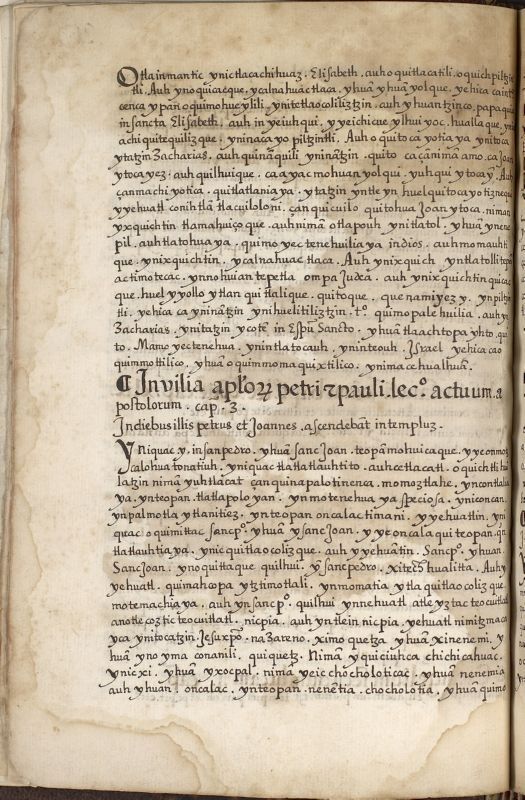 Otla inmantic ynictlacachihuaz. Elisabeth. auh oquitlacatili. oquichpiltzin
tli. Auh ynoquicacque. ycalnahuactlaca. yhuā yhuā yolque. yehica ca in
cenca ypan oquimohueylili. ynitetlaocoliliztzin. auh yhuantzinco. papaqui
in sancta Elisabeth. auh in yeiuhqui. yyeichicueylhuiyoc. hualla que, yn
achiquitequilizque. yninacayo piltzintli. Auh oquitoca yotiaya ynitoca
ytatzin Zacharias. auh quinānquili ynināntzin. quito caçanimā amo. ca Joan
ytocayez. auh quilhuique. ca ayac mohuanyolqui. yuhqui ytocay. Auh
çanmachiyotica. quitlatlaniaya. ytatzin yntleyn huel quitocayotiznequi
yyehuatl conihtlā tlacuiloloni. çan quicuilo quitohua Joan ytoca. niman
yxquichtin tlamahuiço que. auh nimā otlapouh ynitlatol. yhuā ynene
pil. auh tlatohuaya. quimoyectenehuiliaya in dios. auh momauhti
que. ynixquichtin. ycalnahuac tlaca. Auh ynixquich yntlatolli
actimotecac. ynnohuian tepetla ompa Judea. auh ynixquichtin quicac
que. huel yyollo ytlan quitlalique. quitoque. quenamiyez y. ynpiltzin
tli. yehica ca ynināntzin. ynihuelitiliztzin. tº. quimopalehuilia. auh yn
Zacharias. ynitatzin ycotē in Espū Sancto. yhuā tlaachtopayhto. qui
to. Mamoyectenehua. ynintlatocauh. yninteouh. Israel yehica cao
quimmottilico. yhuā oquimmomaquixtilico. ynimacehualhuā.
¶ In vilia aplōꝝ petri ⁊ pauli. lecº. actuum. a
postolorum. cap. 3.
In diebus illis petrus et Joannes. ascendebāt in templuz.
Yniquac y. in san pedro. yhuā sanc Joan. teopāmohuicaque. yyeonmo
calohua tonatiuh. yniquac tlatlatlauhtito. auh cetlacatl. oquichtli
latzin nimā yuhtlacat çanquinapalotinenca. momoztlahe. yncontlalia
ya. ynteopan. tlatlapoloyan. yn motenehua ya speciosa. yniconcan
ynpalmotla ytlanitiez. ynteopan oncalactimani. yyehuatlin. yni
quac oquimittac sancpº. yhuā ysanc Joan. yyeoncalaqui teopan. qn
tlatlauhtiaya. ynicquitlaocolizque. auh yyehuātin. Sancpº. yhuan.
Sanc Joan. ynoquittaque quilhui. ysanpedro. xitechhualitta. Auh y
yehuatl. quimahcopa ytzimotlali. ynmomatia ytla quitlaocolizque
motemachiaya. auh yn sanpº. quilhui ynnehuatl atle yztac teocuitlatl
anotle coztic teocuitlatl. nicpia. auh yn tlein nicpia. yehuatl nimitzmaca
yca ynitocatzin. Jesuxpº. nazareno. ximoquetza yhuā xinenemi. y
huā yno yma conanili. quiquetz. Nimā yquiciuhca chichicahuac.
ynicxi. yhuā yxocpal. nimā yeic chocholoticac. yhuā nenemia
auh yhuan. oncalac. ynteopan. nenētia. chocholotia. yhuā quimo